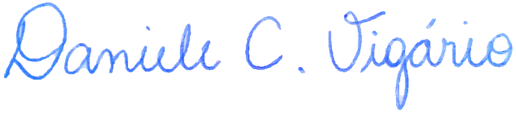 Daniele C. Vigário